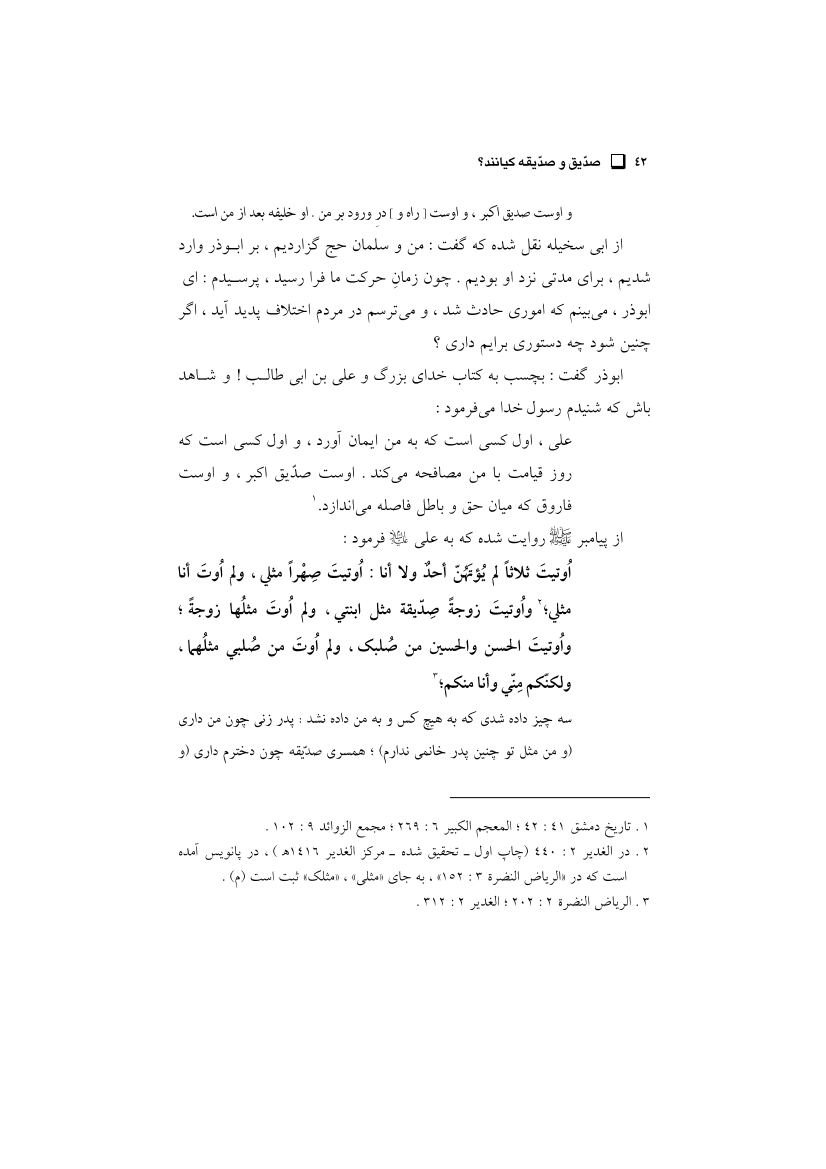 ٤٢ ❏ صدّیق و صدّیقه کیانند؟
و اوست صدیق اکبر ، و اوست [ راه و ] درِ ورود بر من . او خلیفه بعد از من است.
از ابی سخیله نقل شده که گفت : من و سلمان حج گزاردیم ، بر ابـوذر وارد
شدیم ، برای مدتی نزد او بودیم . چون زمانِ حرکت ما فرا رسید ، پرسـیدم : ای
ابوذر ، می‌بینم که اموری حادث شد ، و می‌ترسم در مردم اختلاف پدید آید ، اگر
چنین شود چه دستوری برایم داری ؟
ابوذر گفت : بچسب به کتاب خدای بزرگ و علی بن ابی طالـب ! و شـاهد
باش که شنیدم رسول خدا می‌فرمود :
علی ، اول کسی است که به من ایمان آورد ، و اول کسی است که
روز قیامت با من مصافحه می‌کند . اوست صدّیق اکبر ، و اوست
فاروق که میان حق و باطل فاصله می‌اندازد.١
از پیامبر ﷺ روایت شده که به علی ؑ فرمود :
اُوتيتَ ثلاثاً لم يُؤتَهُنّ أحدٌ ولا أنا : اُوتيتَ صِهْراً مثلي ، ولم اُوتَ أنا
مثلي؛٢ واُوتيتَ زوجةً صِدّيقة مثل ابنتي ، ولم اُوتَ مثلُها زوجةً ؛
واُوتيتَ الحسن والحسين من صُلبک ، ولم اُوتَ من صُلبي مثلُهما ،
ولکنّکم مِنّي وأنا منکم؛٣
سه چیز داده شدی که به هیچ کس و به من داده نشد : پدر زنی چون من داری
(و من مثل تو چنین پدر خانمی ندارم) ؛ همسری صدّیقه چون دخترم داری (و
١ . تاریخ دمشق ٤١ : ٤٢ ؛ المعجم الکبیر ٦ : ٢٦٩ ؛ مجمع الزوائد ٩ : ١٠٢ .
٢ . در الغدیر ٢ : ٤٤٠ (چاپ اول ـ تحقیق شده ـ مرکز الغدیر ١٤١٦ه‍ ) ، در پانویس آمده
است که در «الریاض النضرة ٣ : ١٥٢» ، به جای «مثلی» ، «مثلک» ثبت است (م) .
٣ . الریاض النضرة ٢ : ٢٠٢ ؛ الغدیر ٢ : ٣١٢ .